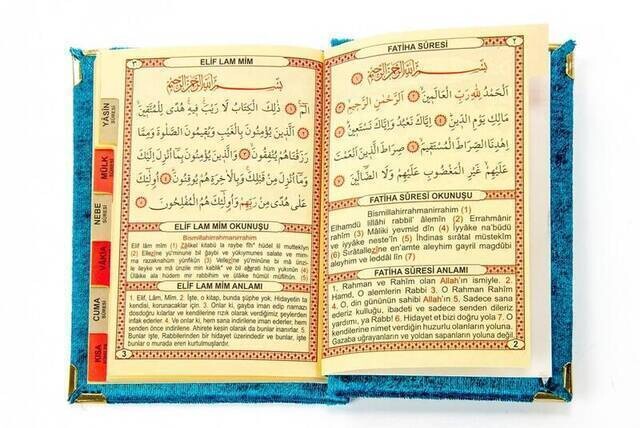 FATİHA SÛRESİ
٢
بِسْمِ اللّٰهِ الرَّحْمٰنِ الرَّحِيمِ ﴿١﴾
اَلْحَمْدُ لِلّٰهِ رَبِّ الْعَالَمِينَ ﴿٢﴾ اَلرَّحْمٰنِ الرَّحِيمِ ﴿٣﴾
مَالِكِ يَوْمِ الدِّينِ ﴿٤﴾ اِيَّاكَ نَعْبُدُ وَاِيَّاكَ نَسْتَعِينُ ﴿٥﴾
اِهْدِنَا الصِّرَاطَ الْمُسْتَقِيمَ ﴿٦﴾ صِرَاطَ الَّذِينَ اَنْعَمْتَ
عَلَيْهِمْ غَيْرِ الْمَغْضُوبِ عَلَيْهِمْ وَلَا الضَّالِّينَ ﴿٧﴾
FATİHA SÛRESİ OKUNUŞU
Bismillahirrahmanirrahim (1)
Elhamdü lillâhi rabbil' âlemîn (2) Errahmânir
rahîm (3) Mâliki yevmid dîn (4) İyyâke na'büdü
ve iyyâke neste'în (5) İhdinas sırâtal müstekîm
(6) Sırâtallezîne en'amte aleyhim gayril magdûbi
aleyhim ve leddâl lîn (7)
FATİHA SÛRESİ ANLAMI
1. Rahman ve Rahîm olan Allah'ın ismiyle. 2.
Hamd, O alemlerin Rabbi 3. O Rahman Rahîm
4. O, din gününün sahibi Allah'ın 5. Sadece sana
ederiz kulluğu, ibadeti ve sadece senden dileriz
yardımı, ya Rabb! 6. Hidayet et bizi doğru yola 7. O
kendilerine nimet verdiğin huzurlu olanların yoluna.
Gazaba uğrayanların ve yoldan sapanların yoluna değil.
2
٣
ELİF LAM MÎM
بِسْمِ اللّٰهِ الرَّحْمٰنِ الرَّحِيمِ
الٓمٓ ﴿١﴾ ذٰلِكَ الْكِتَابُ لَا رَيْبَ فِيهِ هُدًى لِلْمُتَّقِينَ ﴿٢﴾
اَلَّذِينَ يُؤْمِنُونَ بِالْغَيْبِ وَيُقِيمُونَ الصَّلٰوةَ وَمِمَّا
رَزَقْنَاهُمْ يُنْفِقُونَ ﴿٣﴾ وَالَّذِينَ يُؤْمِنُونَ بِمَا اُنْزِلَ اِلَيْكَ
وَمَا اُنْزِلَ مِنْ قَبْلِكَ وَبِالْاٰخِرَةِ هُمْ يُوقِنُونَ ﴿٤﴾ اُولٰئِكَ
عَلٰى هُدًى مِنْ رَبِّهِمْ وَاُولٰئِكَ هُمُ الْمُفْلِحُونَ ﴿٥﴾
ELİF LAM MÎM OKUNUŞU
Bismillahirrahmanirrahim
Elif lâm mîm (1) Zâlikel kitâbü la raybe fîh* hüdel lil müttekîyn
(2) Ellezîne yü'minune bil ğaybi ve yükıymunes salate ve mim-
ma razaknahüm yünfikûn (3) Vellezîne yü'minune bi mâ ünzi-
le ileyke ve mâ ünzile min kablik* ve bil ahırati hüm yukınûn (4)
Ülâike ala hüdem mir rabbihim ve ülâike hümül müflihûn (5)
ELİF LAM MÎM ANLAMI
1. Elif, Lâm, Mîm. 2. İşte, o kitap, bunda şüphe yok. Hidayetin ta
kendisi, korunacaklar için. 3. Onlar ki, gayba iman edip namazı
dosdoğru kılarlar ve kendilerine rızık olarak verdiğimiz şeylerden
infak ederler. 4. Ve onlar ki, hem sana indirilene iman ederler, hem
senden önce indirilene. Ahirete kesin olarak da bunlar inanırlar. 5.
Bunlar işte, Rabbilerinden bir hidayet üzerindedir ve bunlar, işte
bunlar o murada eren kurtulmuşlardır.
3
YÂSİN
SÛRESİ
MÜLK
SÛRESİ
NEBE
SÛRESİ
VAKIA
CUMA
SÛRESİ
KISA
SÛRELER